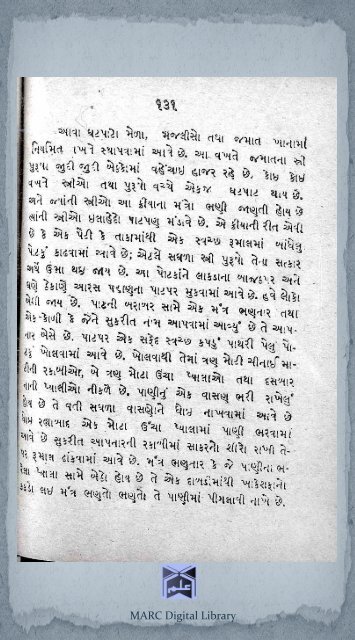 ૧૩૧
આવા ઘટપાટા મેળા, મજલીસો તથા જમાત ખાનામાં
નિયમિત રાખને સ્થાપવામાં આવે છે. આ વખતે જમાતના સ્ત્રી
પુરૂષો જુદી જુદી બેઠકોમાં વહેંચાઇ હાજર રહે છે. કોઇ કોઇ
વખતે સ્ત્રીઓ તથા પુરૂષો વચ્ચે એકજ ઘટપાટ થાય છે.
અને જ્યાંની સ્ત્રીઓ આ ક્રીયાના મંત્રો ભણી જાણતી હોય છે
ત્યાંની સ્ત્રીઓ ઇલાહેદો પાટપણુ મંડાવે છે. એ ક્રીયાની રીત એવી
છે કે એક પેટી કે તાકામાંથી એક સ્વચ્છ રૂમાલમાં બાંધેલુ
પોટકું કાઢવામાં આવે છે; એટલે સઘળા સ્ત્રી પુરૂષો તેના સત્કાર
અર્થે ઉભા થઇ જાય છે. આ પોટકાંને લાકડાના બાજઠપર અને
ઘણે ઠેકાણે આરસ પહાણના પાટપર મુકવામાં આવે છે. હવે લોકો
બેસી જાય છે. પાટની બરાબર સામે એક મંત્ર ભણનાર તથા
એક-કાણી કે જેને સુકરીત નામ આપવામાં આવ્યું છે તે આપ-
નાર બેસે છે. પાટપર એક સફેદ સ્વચ્છ કપડું પાથરી પેલુ પો-
ટકું ખોલવામાં આવે છે. ખોલવાથી તેમાં ત્રણ મોટી ચીનાઇ મા-
ટીની રકાબીઓ, બે ત્રણ મોટા ઉંચા પ્યાલાઓ તથા દસબાર
નાની પ્યાલીઓ નીકળે છે. પાણીનું એક વાસણ ભરી રાખેલું
હોય છે તે વતી સઘળા વાસણોને ધોઇ નાખવામાં આવે છે
એક મોટા ઉંચા પ્યાલામાં પાણી ભરવામાં
આવે છે સુકરીત આપનારની રકાબીમાં સાકરનો શીરો રાખી તે-
પર રૂમાલ ઢાંકવામાં આવે છે. મંત્ર ભણનાર કે જે પાણીના ભ-
રેલા પ્યાલા સામે બેઠો હોય છે તે એક દાબડીમાંથી ખાકેશફાનો
કકડો લઇ મંત્ર ભણતો ભણતો તે પાણીમાં પીગળાવી નાખે છે.
MARC Digital Library